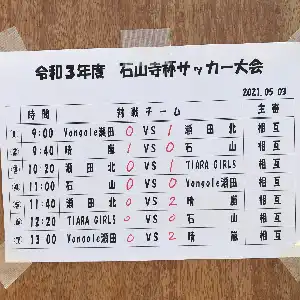 令和3年度 石山寺杯サッカー大会
2021.05.03
時間 対戦チーム 主審
① 9:00 Vongole瀬田 0 VS 1 瀬田北 相互
② 9:40 晴嵐 1 VS 0 石山 相互
③ 10:20 瀬田北 0 VS 1 TIARA GIRLS 相互
④ 11:00 石山 0 VS 0 Vongole瀬田 相互
⑤ 11:40 瀬田北 0 VS 2 晴嵐 相互
⑥ 12:20 TIARA GIRLS 0 VS 0 石山 相互
⑦ 13:00 Vongole瀬田 0 VS 2 晴嵐 相互